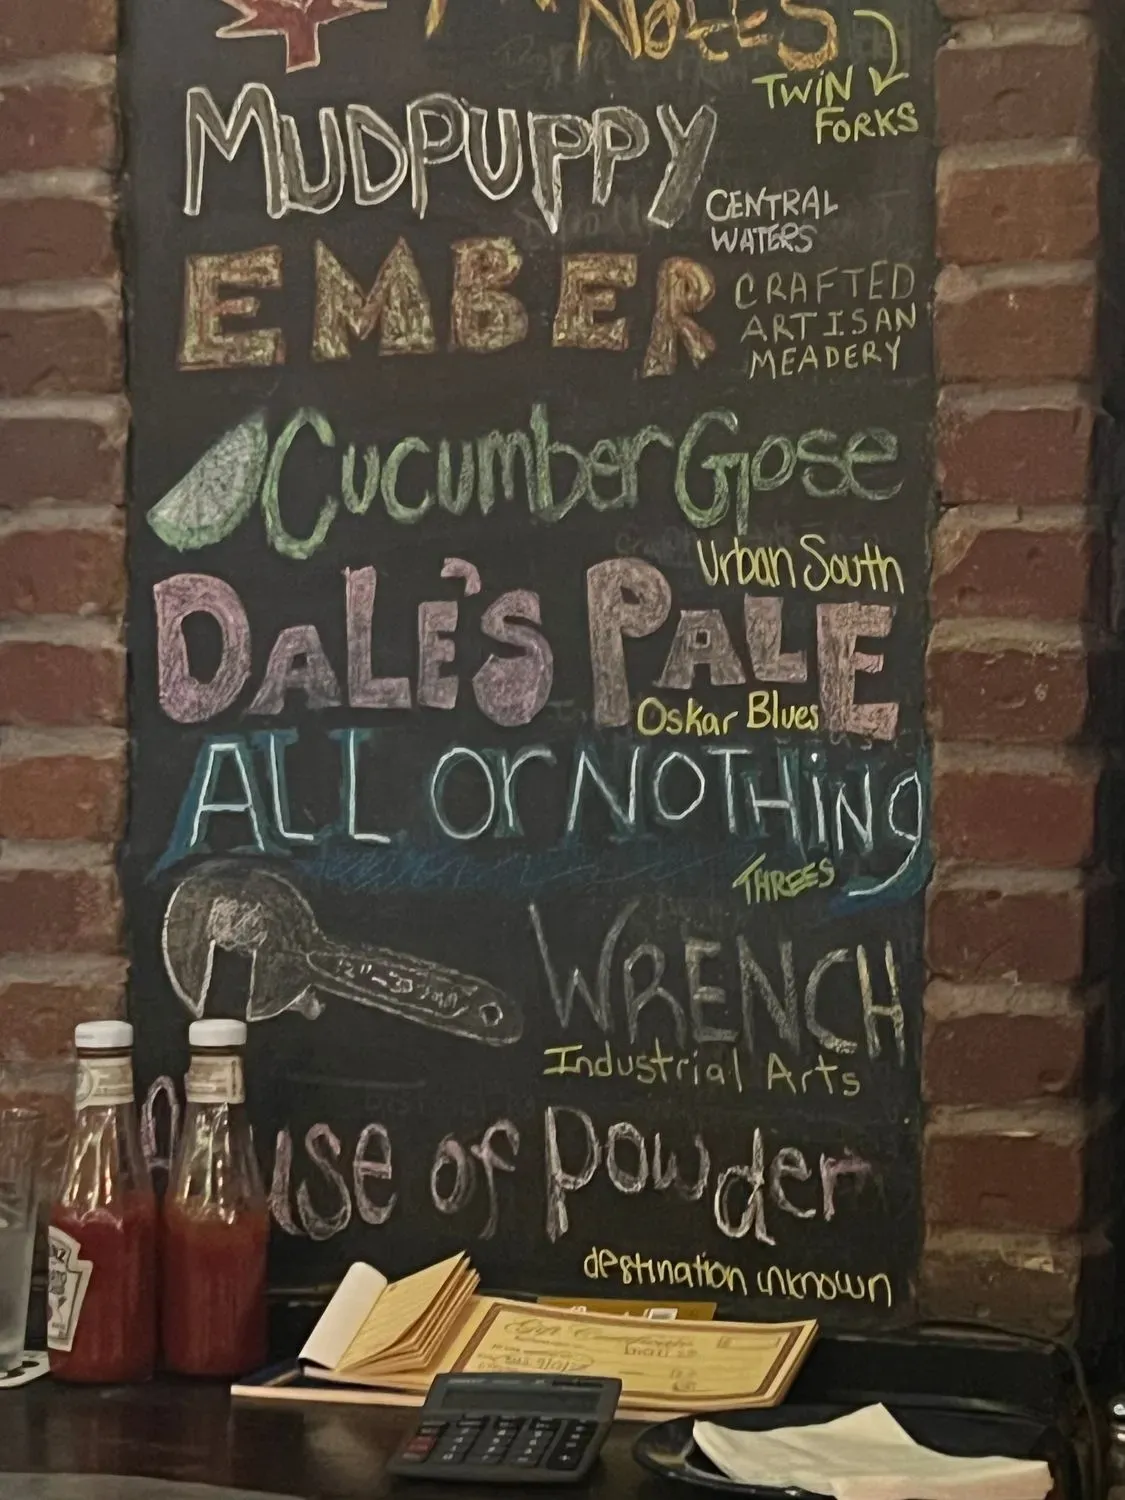 NOTES
TWIN
FORKS
MUDPUPPY
CENTRAL
WATERS
EMBER
CRAFTED
ARTISAN
MEADERY
Cucumber Gose
Urban South
DALE'S PALE
Oskar Blues
ALL or NOTHING
THREES
WRENCH
Industrial Arts
of Powder
destination unknown